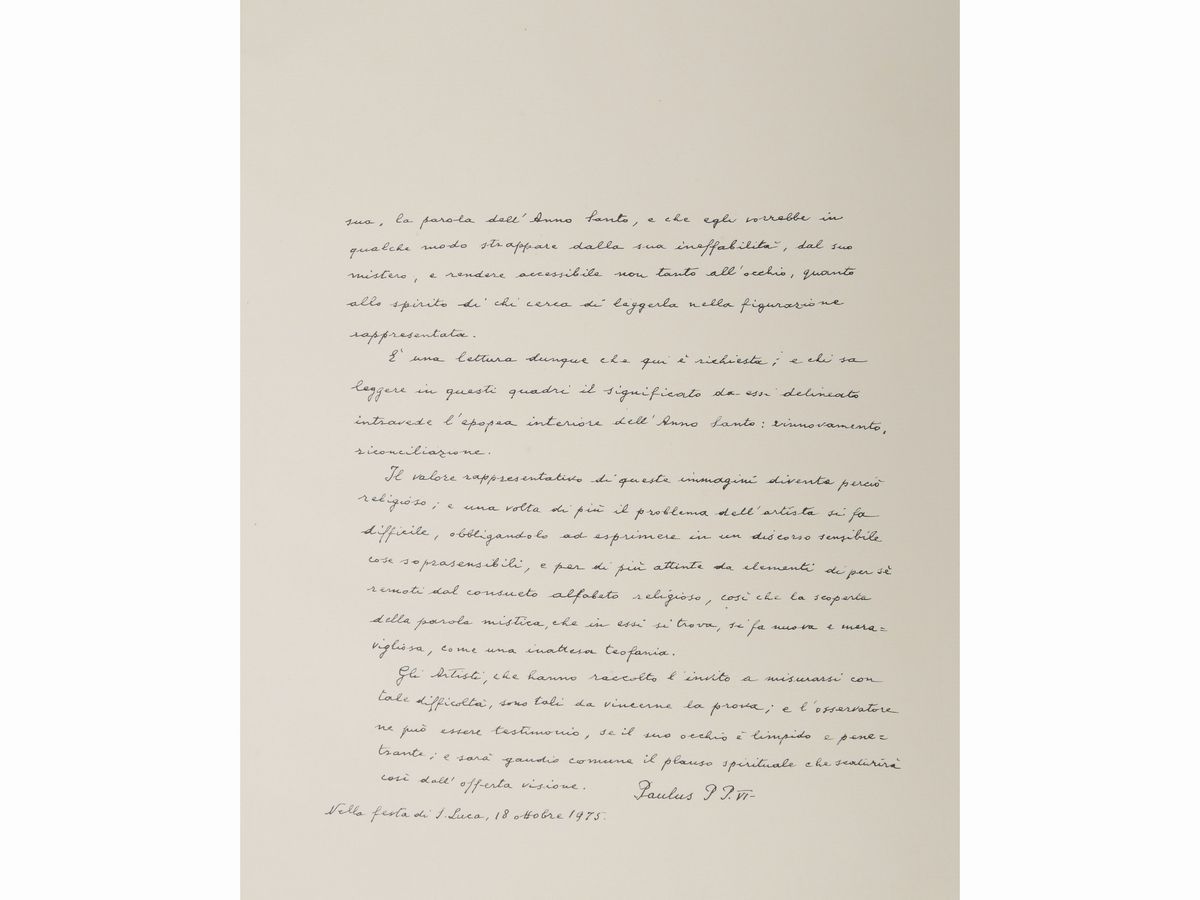 sua, la parola dell'Anno Santo, e che egli vorrebbe in
qualche modo strappare dalla sua ineffabilità, dal suo
mistero, e rendere accessibile non tanto all'occhio, quanto
allo spirito di chi cerca di leggerla nella figurazione
rappresentata.
È una lettura dunque che qui è richiesta; e chi sa
leggere in questi quadri il significato da essi delineato
intravede l'epopea interiore dell'Anno Santo: rinnovamento,
riconciliazione.
Il valore rappresentativo di queste immagini diventa perciò
religioso; e una volta di più il problema dell'artista si fa
difficile, obbligandolo ad esprimere in un discorso sensibile
cose soprasensibili, e per di più attinte da elementi di per sè
remoti dal consueto alfabeto religioso, così che la scoperta
della parola mistica, che in essi si trova, si fa nuova e mera=
vigliosa, come una inattesa teofania.
Gli Artisti, che hanno raccolto l'invito a misurarsi con
tale difficoltà, sono tali da vincerne la prova; e l'osservatore
ne può essere testimonio, se il suo occhio è limpido e pene=
trante; e sarà gaudio comune il plauso spirituale che scaturirà
così dall'offerta visione. Paulus P P. VI-
Nella festa di S. Luca, 18 ottobre 1975.